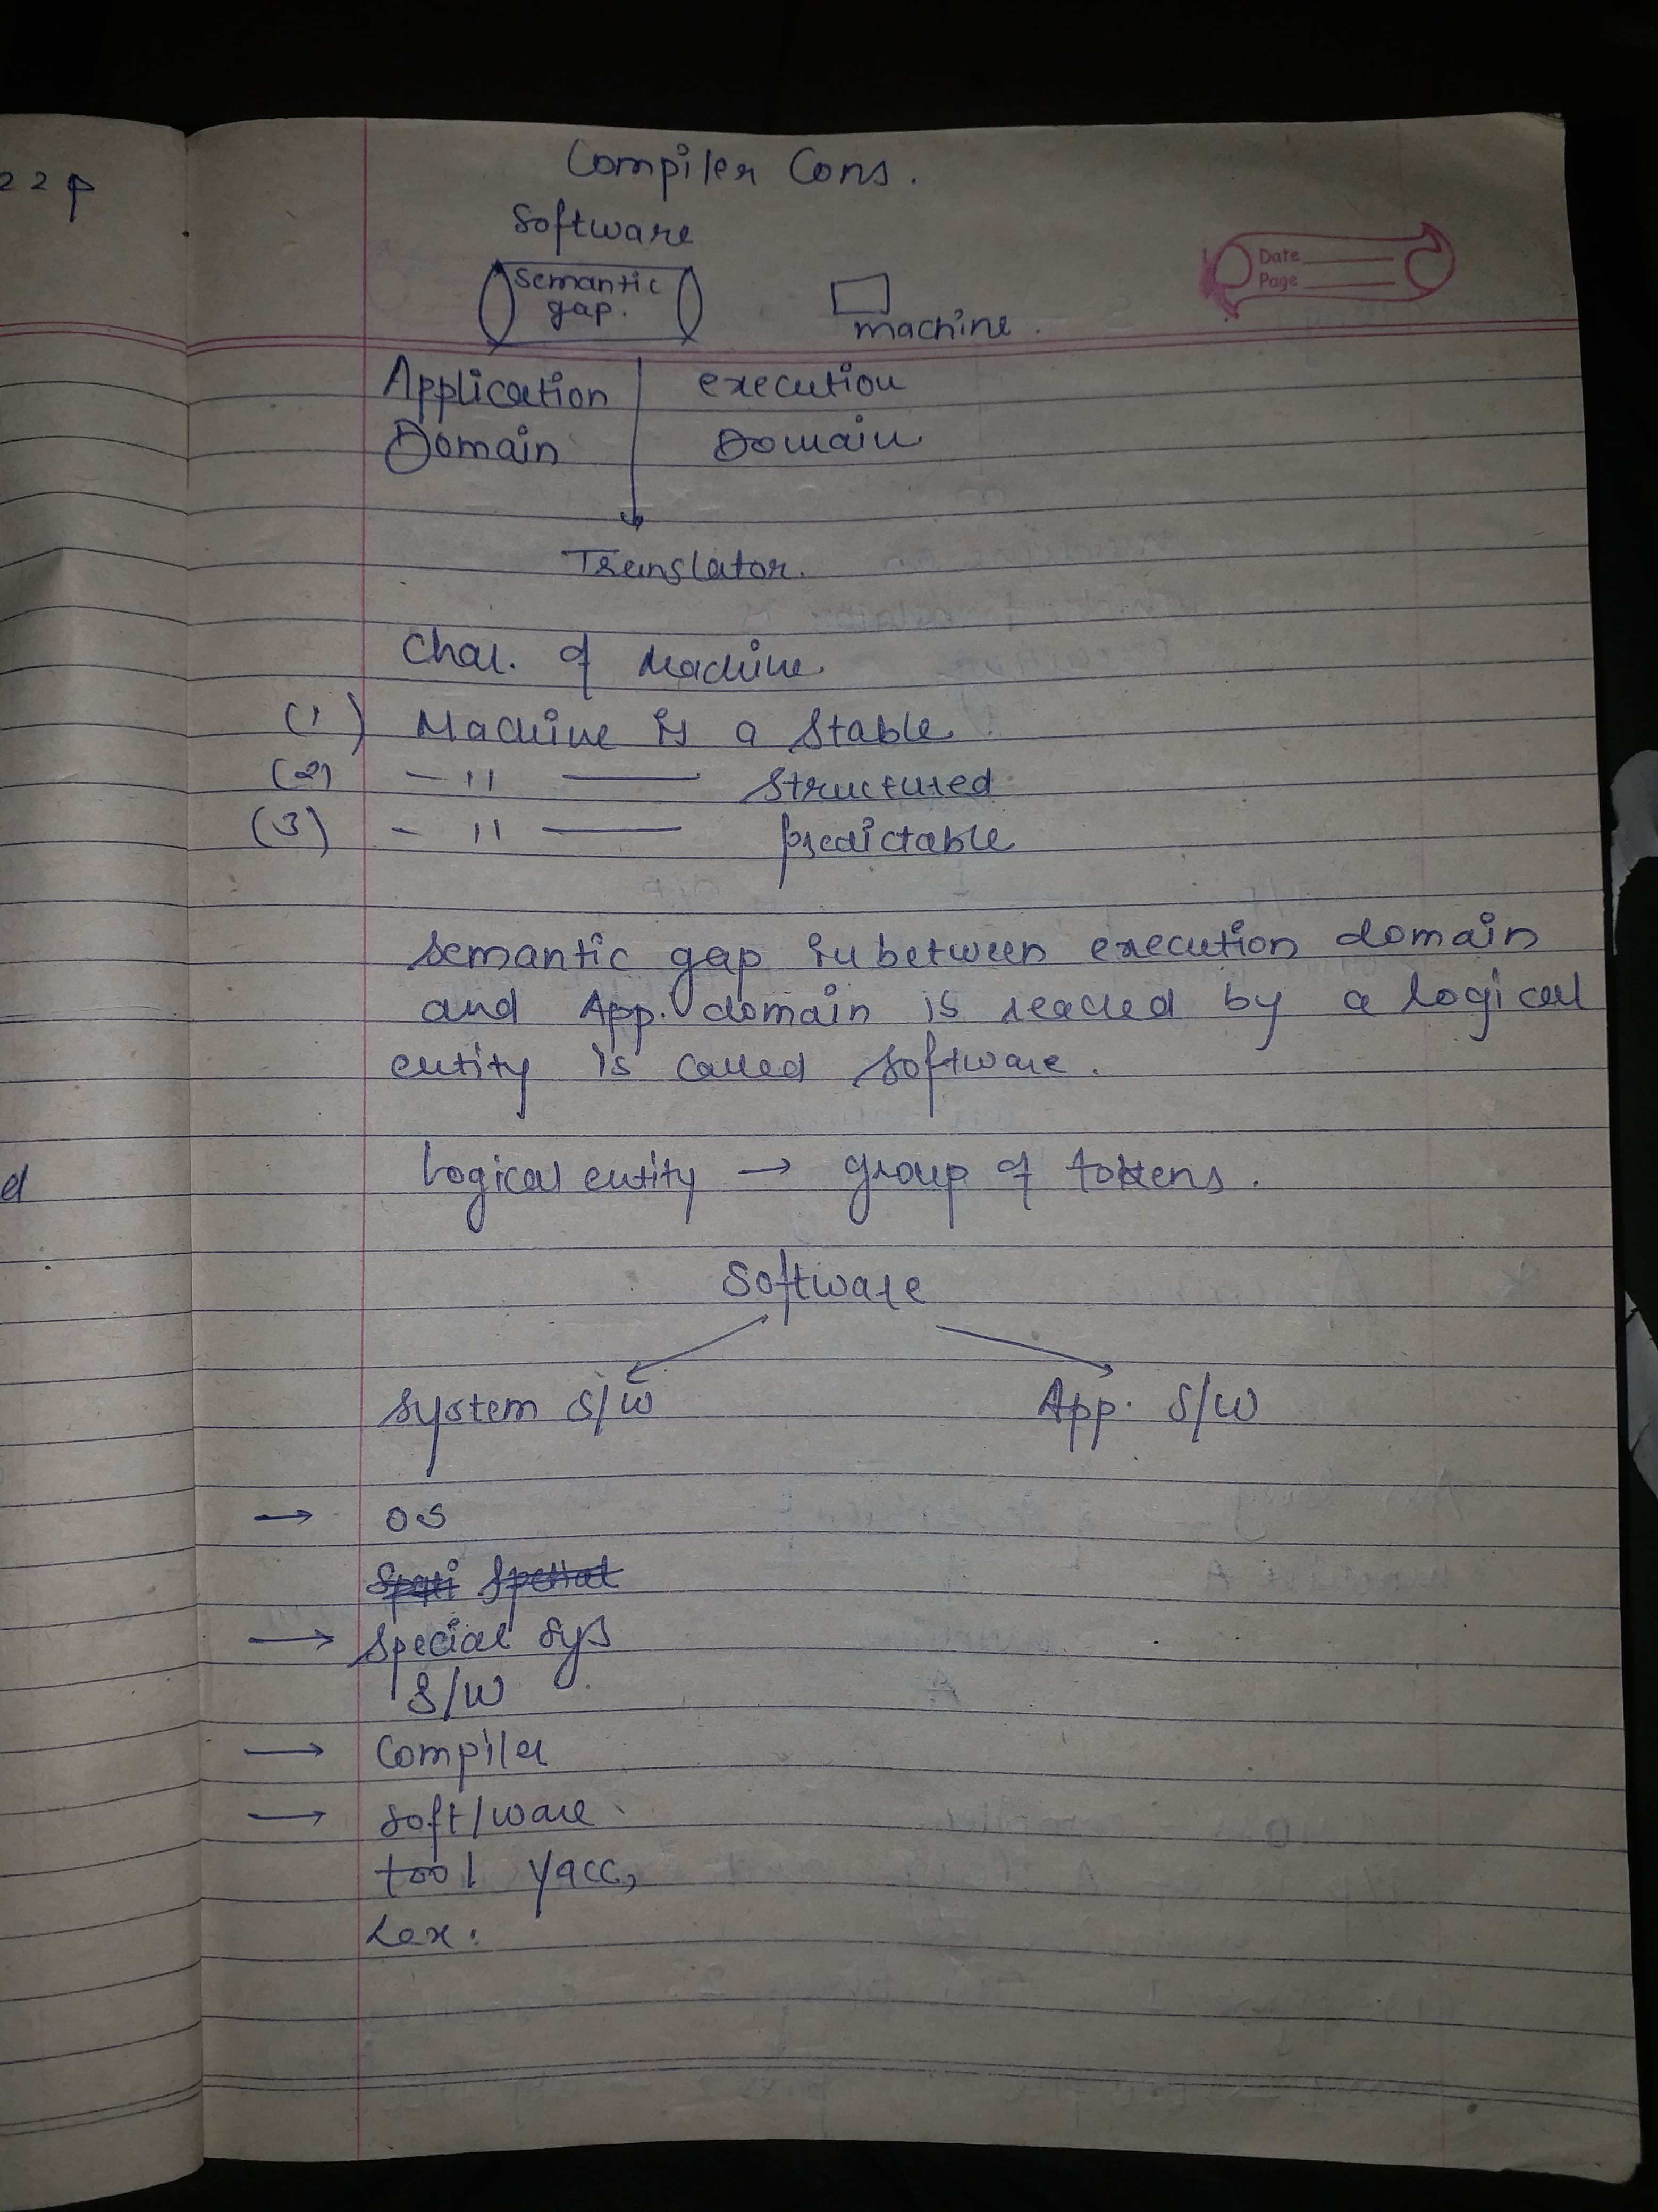 22p
Compiler Cons.
Software
Semantic
gap.
machine.
Date
Page
Application execution
Domain Domain
Translator.
Char. of Machine.
(1) Machine is a Stable
(2) — 11 —— Structured
(3) — 11 —— predictable
Semantic gap in between execution domain
and App. domain is reached by a logical
entity is called Software.
Logical entity → group of tokens.
el
Software
System S/W App. S/W
→ OS
→ Special Sys
S/W
→ Compiler
→ Soft/ware
tool Yacc,
Lex.